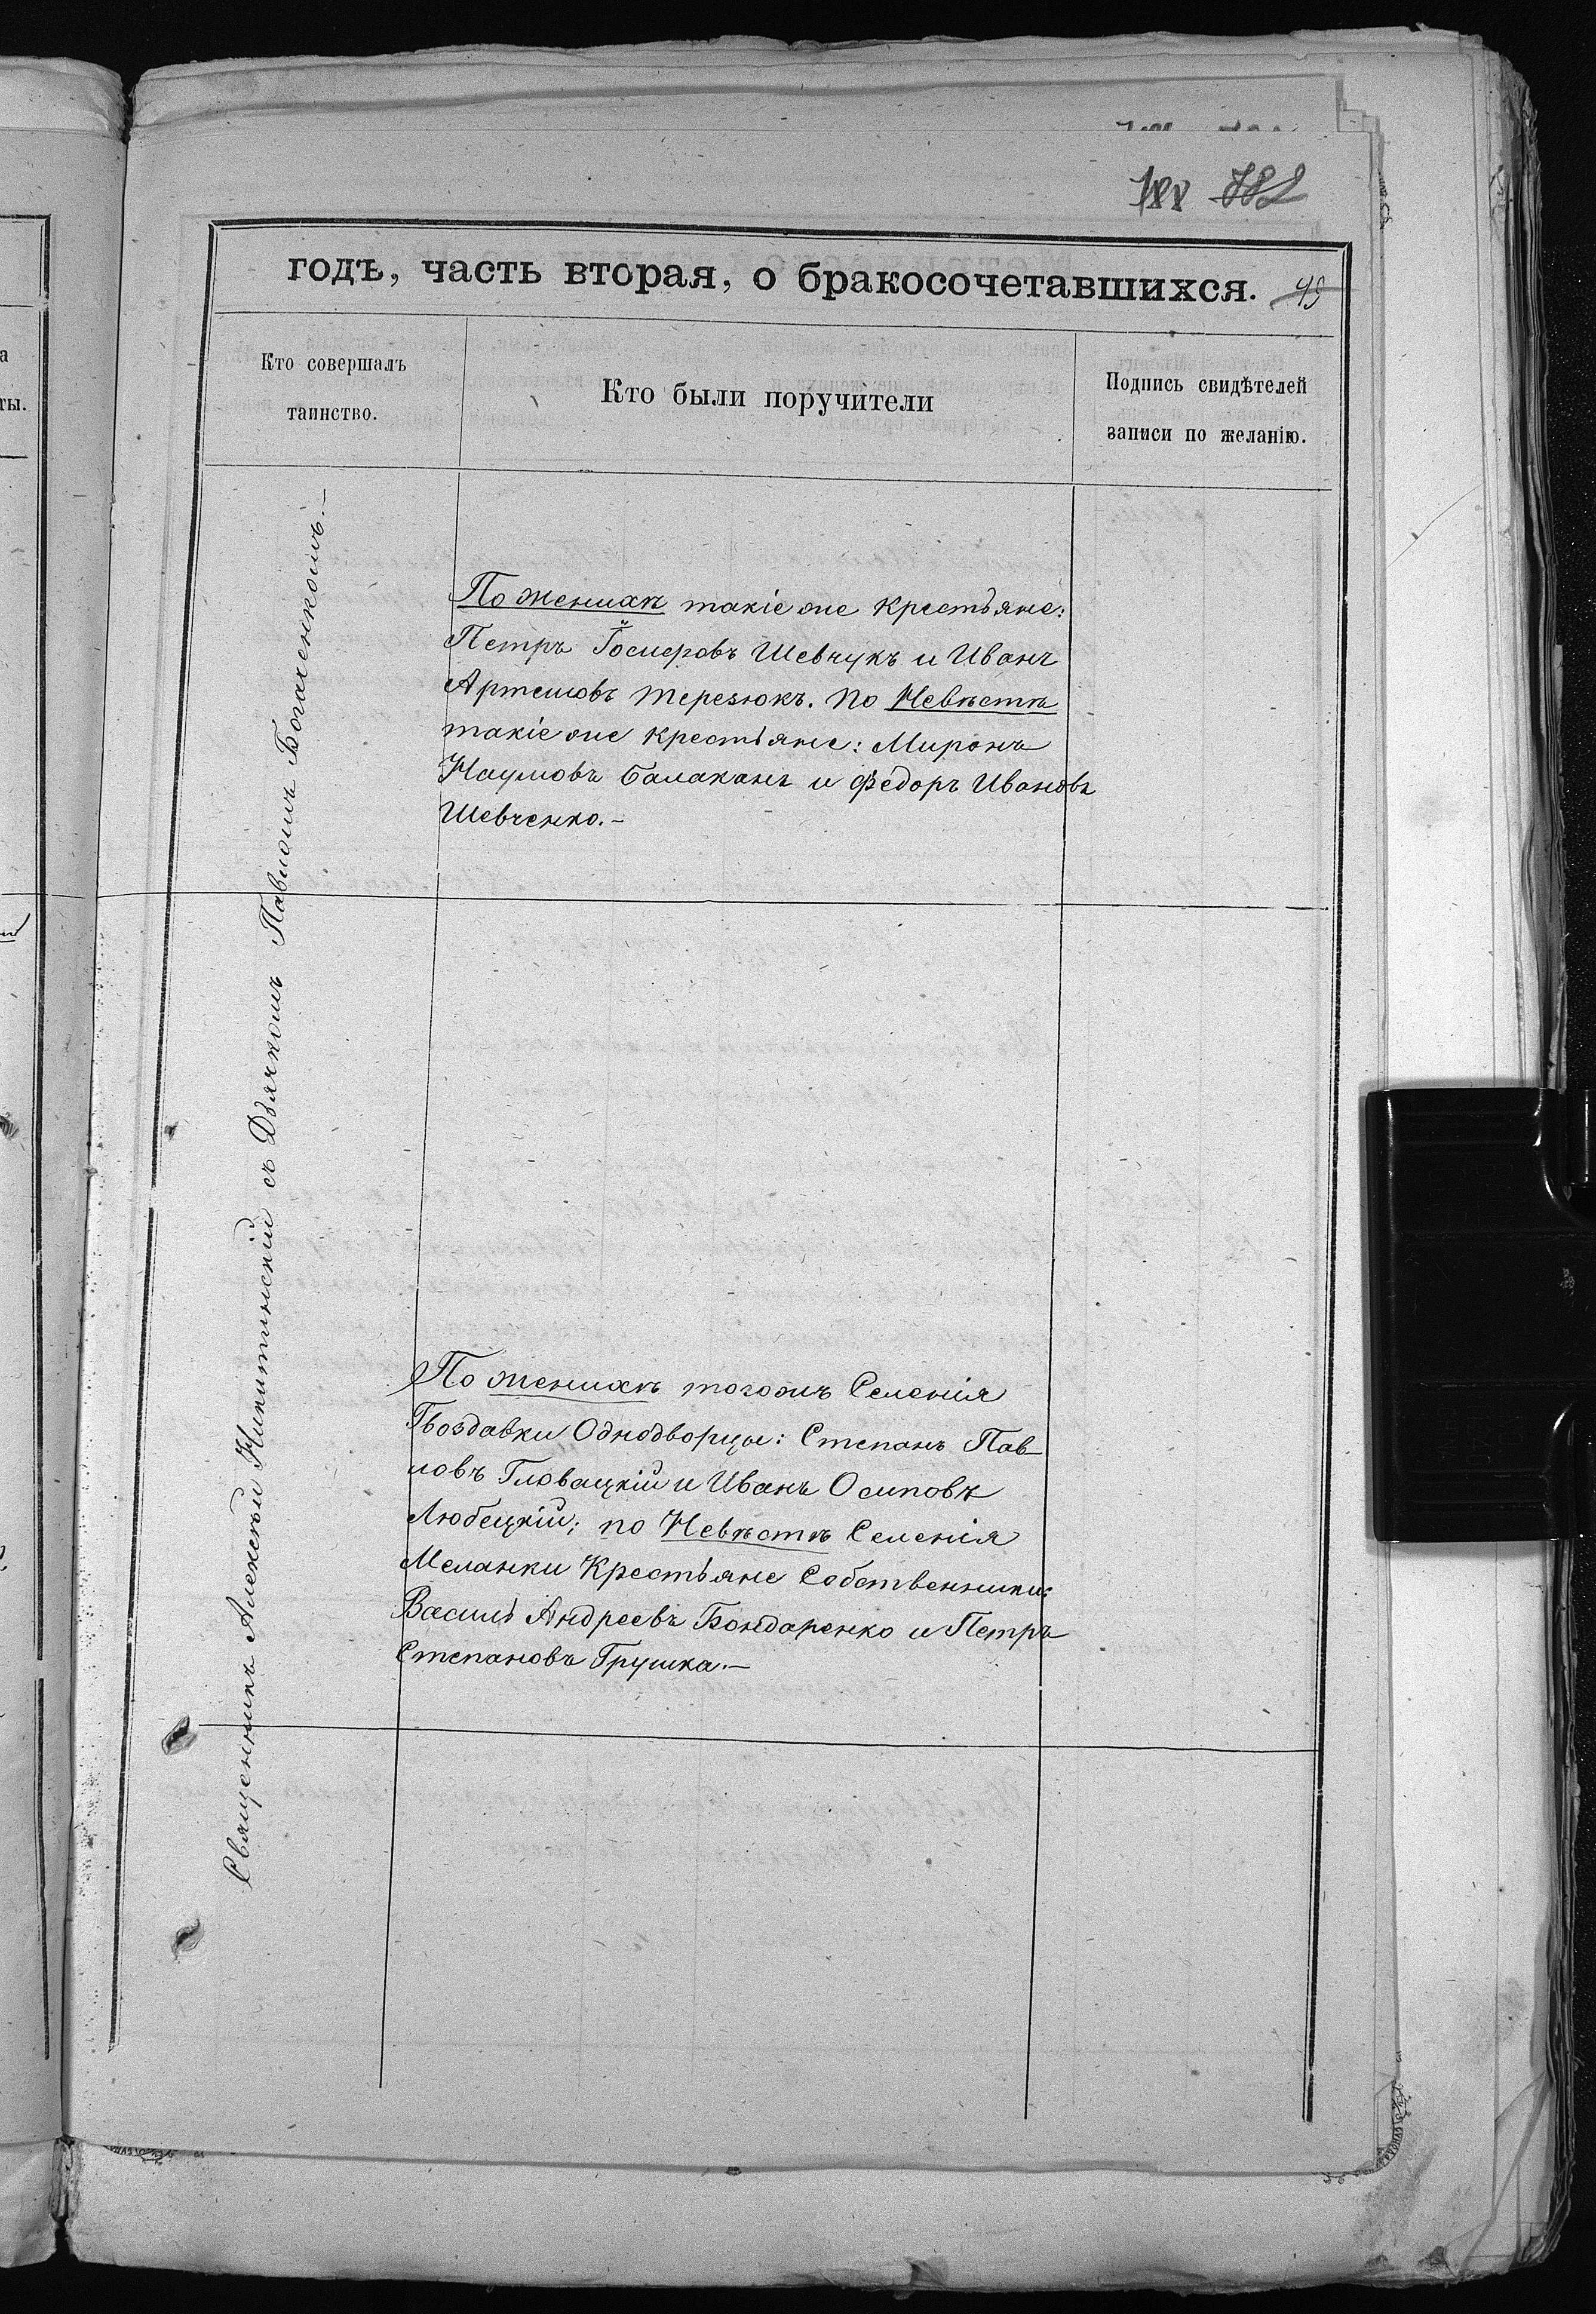 годъ, часть вторая, о бракосочетавшихся. 49
Кто совершалъ
таинство.
Кто были поручители
Подпись свидѣтелей
записи по желанію.
Священникъ Алексѣй Никитинскій съ Дьячкомъ Павломъ Богаченкомъ.—
По женихѣ такіе же крестьяне:
Петръ Шевчукъ и Иванъ
Артемовъ Терезюкъ. По Невѣстѣ
такіе же крестьяне: Миронъ
Наумовъ Балаканъ и Федоръ Ивановъ
Шевченко.—
По женихѣ тогожъ Селенія
Гвоздавки Однодворцы: Степанъ Пав-
ловъ Гловацкій и Иванъ Осиповъ
Любецкій; по Невѣстѣ Селенія
Меланки Крестьяне Собственники:
Василь Андреевъ Бондаренко и Петръ
Степановъ Грушка.—